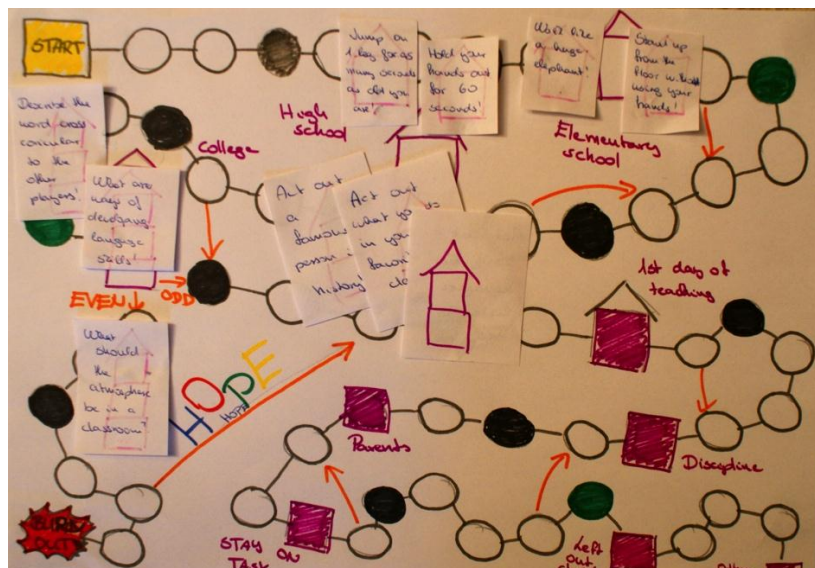 START
Jump on
1 leg for as
many seconds
as old you
are!
Hold your
hands out
for 60
seconds!
Work like
a huge
elephant!
Stand up
from the
floor without
using your
hands!
High
school
Elementary
school
Describe the
word cross
to the
other
players!
College
What are
ways of
language
skills!
Act out
a
famous
person in
history!
Act out
what
in you
EVEN
ODD
1st day of
teaching
What
should
the
atmosphere
be in a
classroom?
HOPE
HOPE
Parents
Discipline
BURN
OUT
STAY
ON
TASK
Left
out